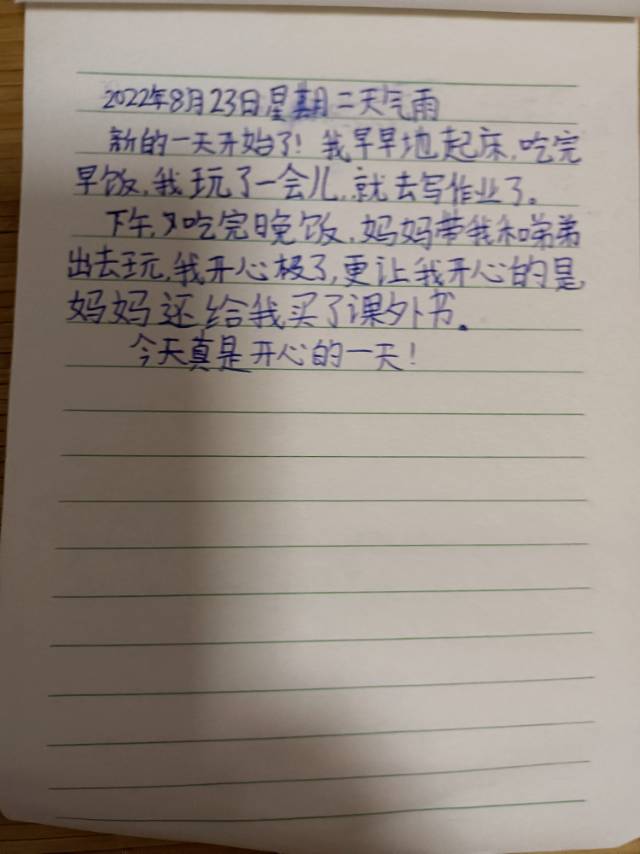 2022年8月23日星期二天气雨
新的一天开始了！我早早地起床,吃完
早饭,我玩了一会儿,就去写作业了。
下午,吃完晚饭,妈妈带我和弟弟
出去玩,我开心极了,更让我开心的是
妈妈还给我买了课外书。
今天真是开心的一天！